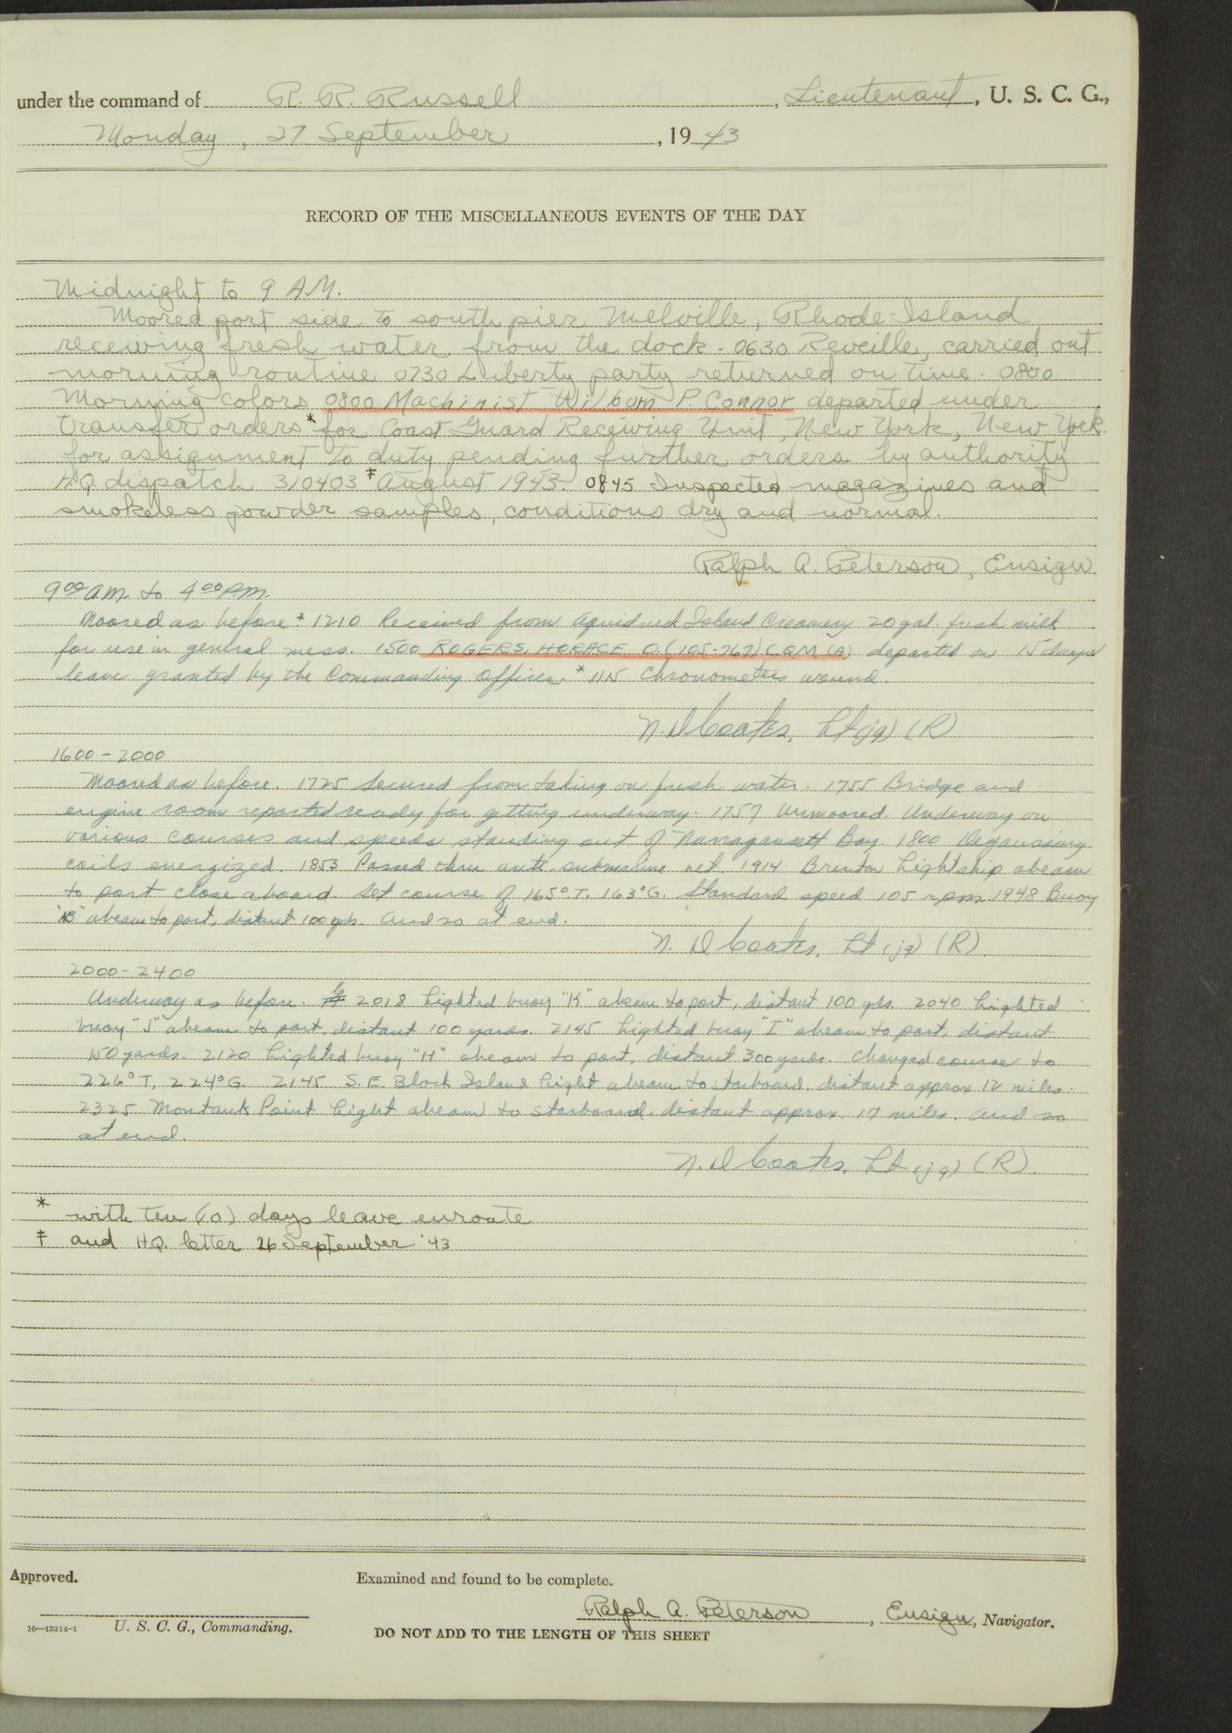 under the command of R. R. Russell, Lieutenant, U. S. C. G.,
Monday, 27 September, 1943
RECORD OF THE MISCELLANEOUS EVENTS OF THE DAY
Midnight to 9 A.M.
Moored port side to south pier Melville, Rhode Island
receiving fresh water from the dock - 0630 Reveille, carried out
morning routine 0730 Liberty party returned on time. 0800
Morning colors 0800 Machinist Wilbum P. Connor departed under
transfer orders * for Coast Guard Receiving Unit, New York, New York
for assignment to duty pending further orders by authority
H.Q. dispatch 310403 ‡ August 1943. 0845 Inspected magazines and
smokeless powder samples, conditions dry and normal.
Ralph A. Peterson, Ensign
9 00 am. to 4 00 P.m.
Moored as before * 1210 Received from Aquidneck Island Creamery 20 gal. fresh milk
for use in general mess. 1500 ROGERS, HORACE O. (105-767) CQM (A) departed on 15 days
leave granted by the Commanding Officer. * 1115 Chronometers wound.
N. D Coates, Lt (jg) (R)
1600-2000
Moored as before. 1725 Secured from taking on fresh water. 1755 Bridge and
engine room reported ready for getting underway. 1757 Unmoored. Underway on
various courses and speeds standing out of Narragansett Bay. 1800 Degaussing
coils energized. 1853 Passed thru anti-submarine net. 1914 Brenton Lightship abeam
to port close aboard. Set course of 165° T. 163° G. Standard speed 105 rpm 1948 Buoy
abeam to port, distant 100 yds. And so at end.
N. D Coates, Lt (jg) (R)
2000-2400
Underway as before. 2018 Lighted buoy "K" abeam to port, distant 100 yds. 2040 Lighted
buoy "J" abeam to port, distant 100 yards. 2145 Lighted buoy "I" abeam to port, distant
150 yards. 2120 Lighted buoy "H" abeam to port, distant 300 yards. Changed course to
226° T, 224° G. 2145 S.E. Block Island Light abeam to starboard, distant approx 12 miles.
2325 Montauk Point Light abeam to starboard, distant approx. 17 miles. And so
at end.
N. D Coates, Lt (jg) (R).
* with ten (10) days leave enroute
‡ and H.Q. letter 26 September '43
Approved.
Examined and found to be complete.
Ralph A. Peterson, Ensign, Navigator.
16—13314-1 U. S. C. G., Commanding.
DO NOT ADD TO THE LENGTH OF THIS SHEET